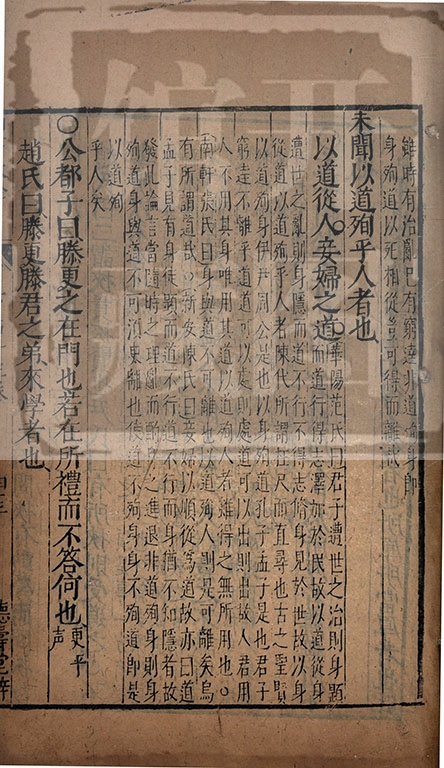 雖時有治亂己有窮達非道殉身即
身殉道以死相從豈可得而離哉
未聞以道殉乎人者也
以道從人妾婦之道
華陽范氏曰君子遭世之治則身顯
而道行得志澤加於民故以道從身
遭世之亂則身隱而道不行不得志修身見於世故以身
從道以道殉乎人者陳代所謂枉尺而直尋也古之聖賢
以道殉身伊尹周公是也以身殉道孔子孟子是也君子
窮達不離乎道道可以處則處道可以出則出故人君用
人不用其身唯用其道以道殉人者雖得之無所用也○
南軒張氏曰身與道不可離也以道殉人則是可離矣烏
有所謂道哉○新安陳氏曰妾婦以順從爲道故亦曰道
孟子見有身徒顯而道不行道不行而身猶不知隱者故
發此論言當隨時之理亂而酬以之進退非道殉身則身
殉道身與道不可須臾離也使道不殉身身不殉道即是
以道殉
乎人矣
○公都子曰滕更之在門也若在所禮而不答何也
更平
聲
趙氏曰滕更滕君之弟來學者也